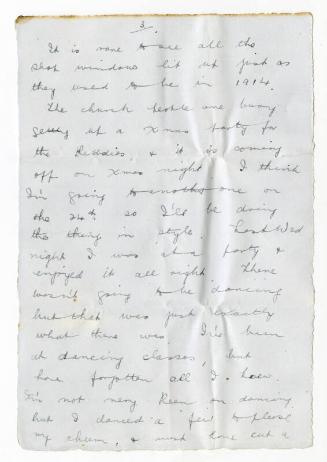 3.
It is rare to see all the
shop windows lit up just as
they used to be in 1914.
The church people are busy
getting up a Xmas party for
the kiddies, & it is coming
off on Xmas night. I think
I'm going to another one on
the 24th so I'll be doing
the thing in style. Last Wed
night I was at a party &
enjoyed it all night. There
wasn't going to be dancing
but that was just exactly
what there was. I've been
at dancing classes, but
have forgotten all I knew.
I'm not very keen on dancing
but I danced a few to please
my chum, & must have cut a